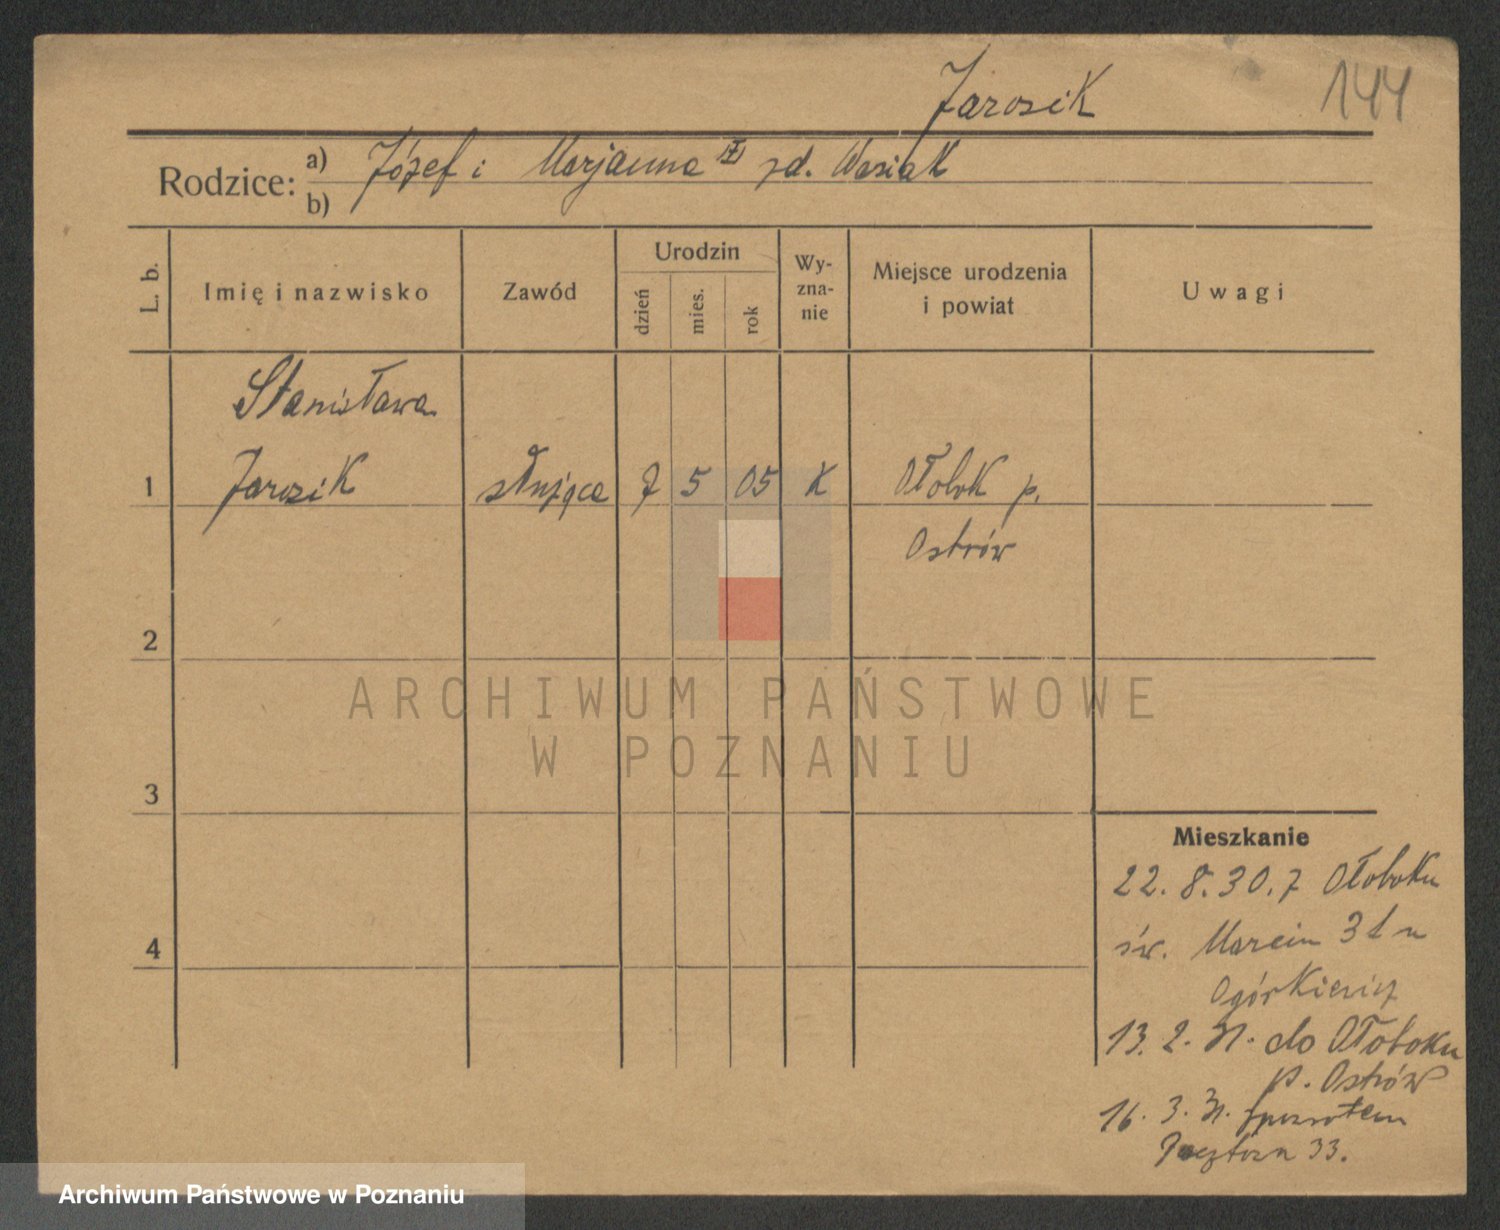 Jarosik 144
Rodzice: a) Józef i Marjanna zd. Wasiak
b)
L. b. Imię i nazwisko Zawód Urodzin dzień mies. rok Wy-zna-nie Miejsce urodzenia i powiat Uwagi
Stanisława
1 Jarosik służąca 7 5 05 K Ołobok p.
Ostrów
2
ARCHIWUM PAŃSTWOWE
W POZNANIU
3
Mieszkanie
22. 8. 30. z Ołoboku
4 św. Marcin 31 u
Ogórkiewicz
13. 2. 31. do Ołoboku
p. Ostrów
16. 3. 31. zpowrotem
33.
Archiwum Państwowe w Poznaniu